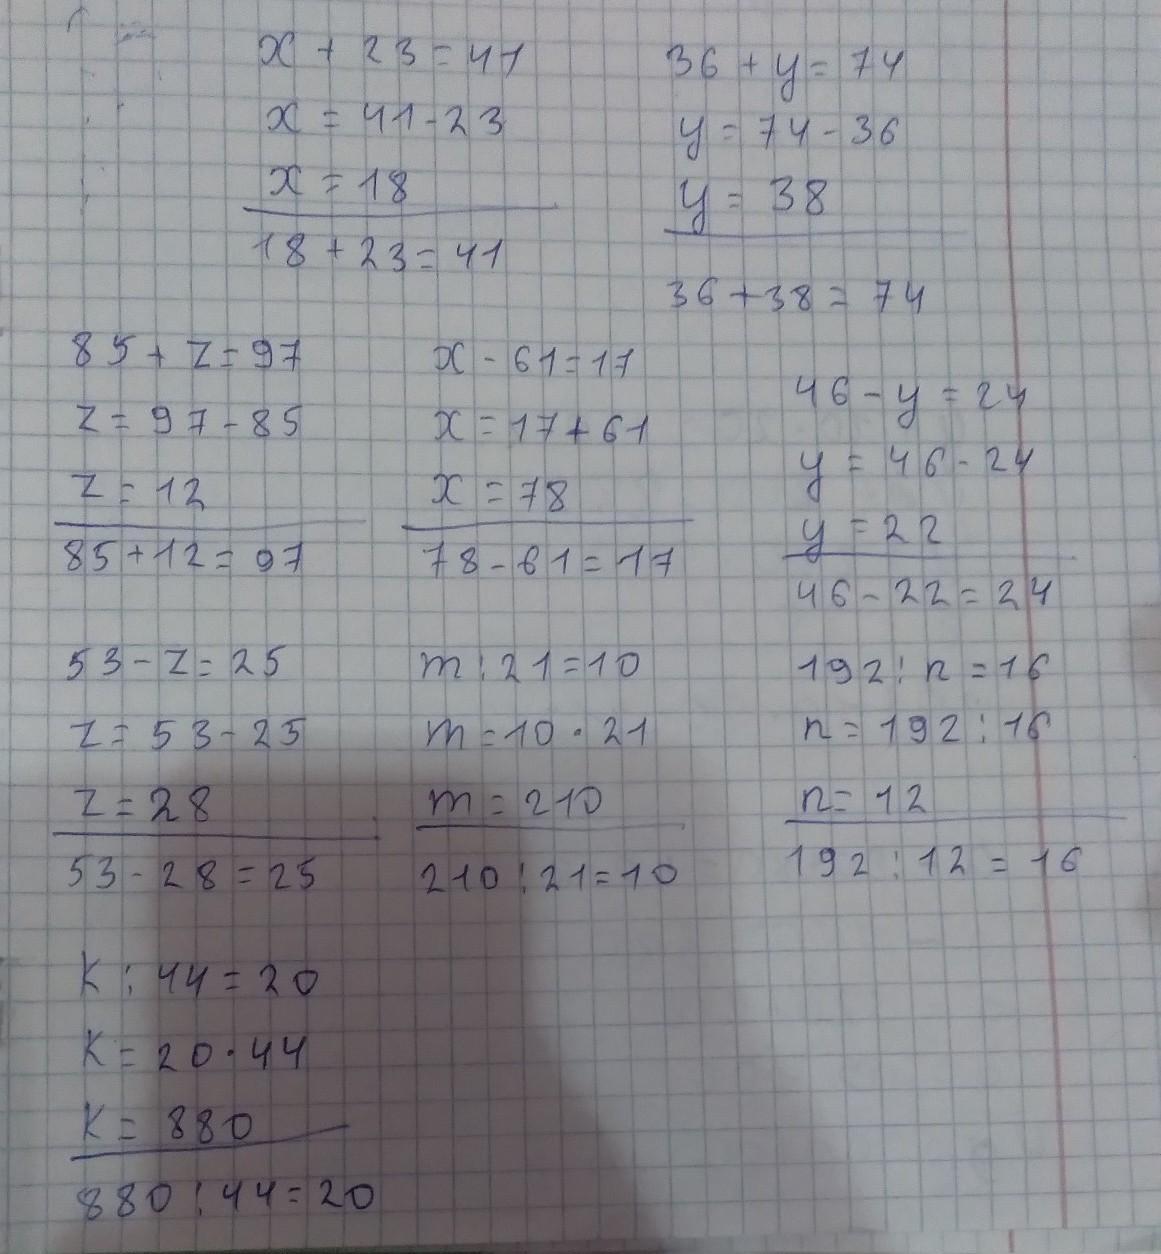 x + 23 = 41
x = 41 - 23
x = 18
18 + 23 = 41
36 + y = 74
y = 74 - 36
y = 38
36 + 38 = 74
85 + z = 97
z = 97 - 85
z = 12
85 + 12 = 97
x - 61 = 17
x = 17 + 61
x = 78
78 - 61 = 17
46 - y = 24
y = 46 - 24
y = 22
46 - 22 = 24
53 - z = 25
z = 53 - 25
z = 28
53 - 28 = 25
m : 21 = 10
m = 10 · 21
m = 210
210 : 21 = 10
192 : n = 16
n = 192 : 16
n = 12
192 : 12 = 16
k : 44 = 20
k = 20 · 44
k = 880
880 : 44 = 20